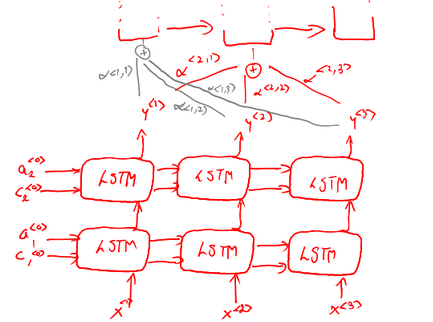 + +
α<1,1> α<2,1> α<1,3> α<2,2> α<2,3>
α<1,2>
y<1> y<2> y<3>
a₂<0> LSTM LSTM LSTM
c₂<0>
a₁<0> LSTM LSTM LSTM
c₁<0>
x<1> x<2> x<3>